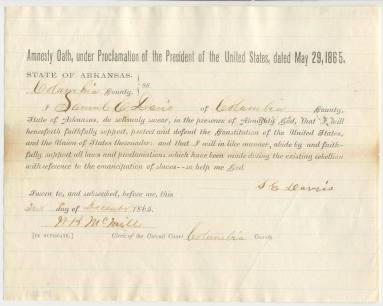 Amnesty Oath, under Proclamation of the President of the United States, dated May 29, 1865.
STATE OF ARKANSAS,
Columbia County. } ss.
I Samuel C Davis of Columbia County,
State of Arkansas, do solemnly swear, in the presence of Almighty God, that I will
henceforth faithfully support, protect and defend the Constitution of the United States,
and the Union of States thereunder: and that I will in like manner, abide by and faith-
fully support all laws and proclamations which have been made during the existing rebellion
with reference to the emancipation of slaves—so help me God.
S C Davis
Sworn to, and subscribed, before me, this
day of December 1865.
[IN DUPLICATE.] Clerk of the Circuit Court, Columbia County